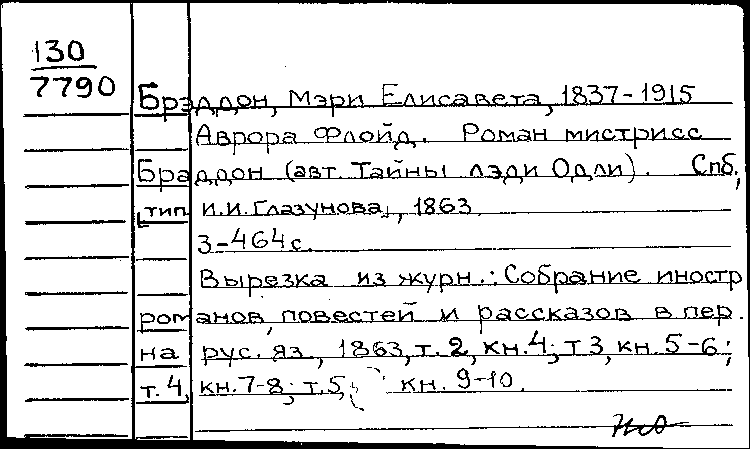 130
7790
Брэддон, Мэри Елисавета, 1837-1915
Аврора Флойд. Роман мистрисс
Браддон (авт. Тайны лэди Одли). Спб,
[тип. И.И. Глазунова], 1863.
3-464 с.
Вырезка из журн.: Собрание иностр
романов, повестей и рассказов в пер.
на рус. яз., 1863, т. 2, кн. 4; т 3, кн. 5-6;
т. 4, кн. 7-8; т. 5, кн. 9-10.